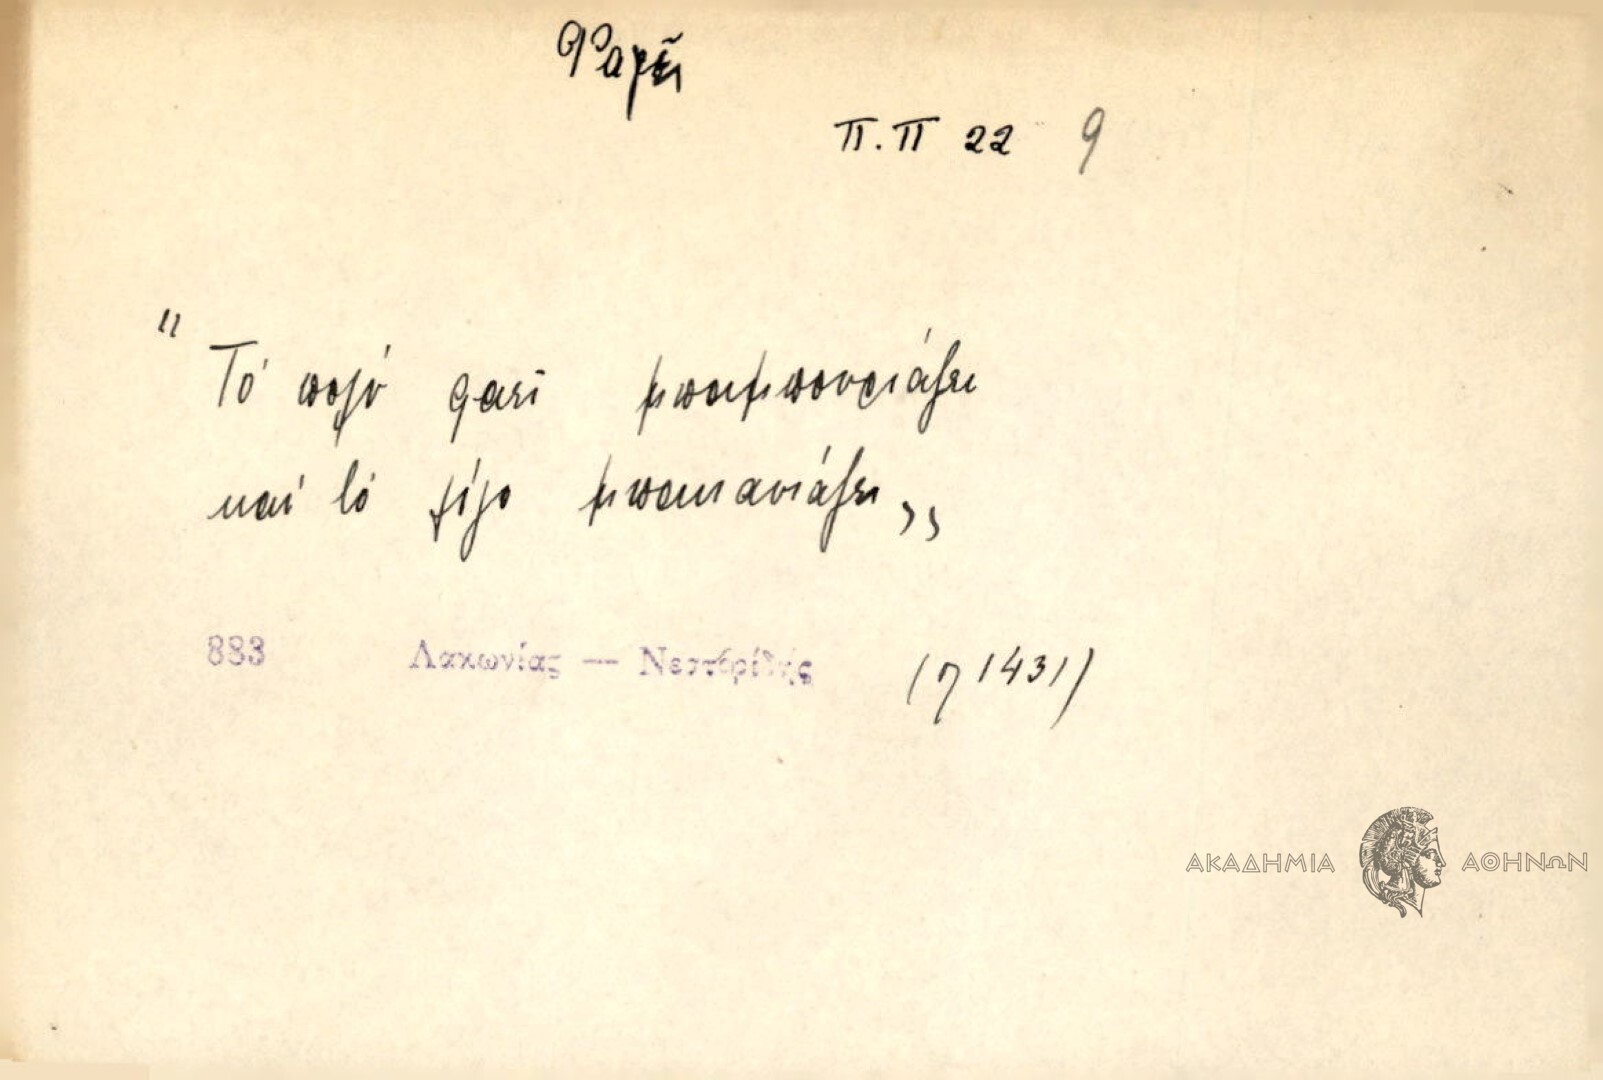 Φαγεῖ
Π.Π 22 9
" Τό πολύ φαεῖ μπαμπουριάζει
καί τό λίγο μπακανιάζει ,,
883 Λακωνίας — Νεστορίδης (η 1431)
ΑΚΑΔΗΜΙΑ ΑΘΗΝΩΝ